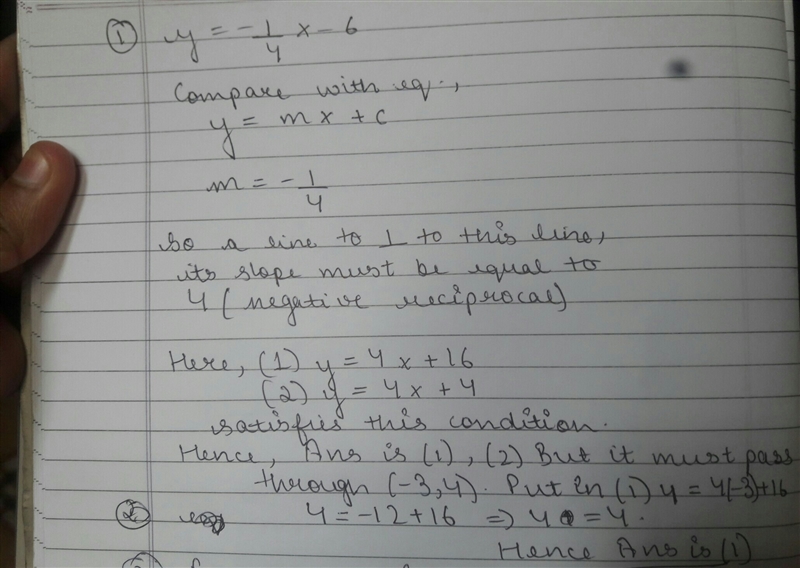 ① y = -1/4 x - 6
Compare with eq.,
y = mx + c
m = -1/4
So a line to ⊥ to this line,
its slope must be equal to
4 (negative reciprocal)
Here, (1) y = 4x + 16
(2) y = 4x + 4
satisfies this condition.
Hence, Ans is (1), (2) But it must pass
through (-3, 4). Put in (1) y = 4(-3)+16
② 4 = -12 + 16 ⇒ 4 = 4.
Hence Ans is (1)